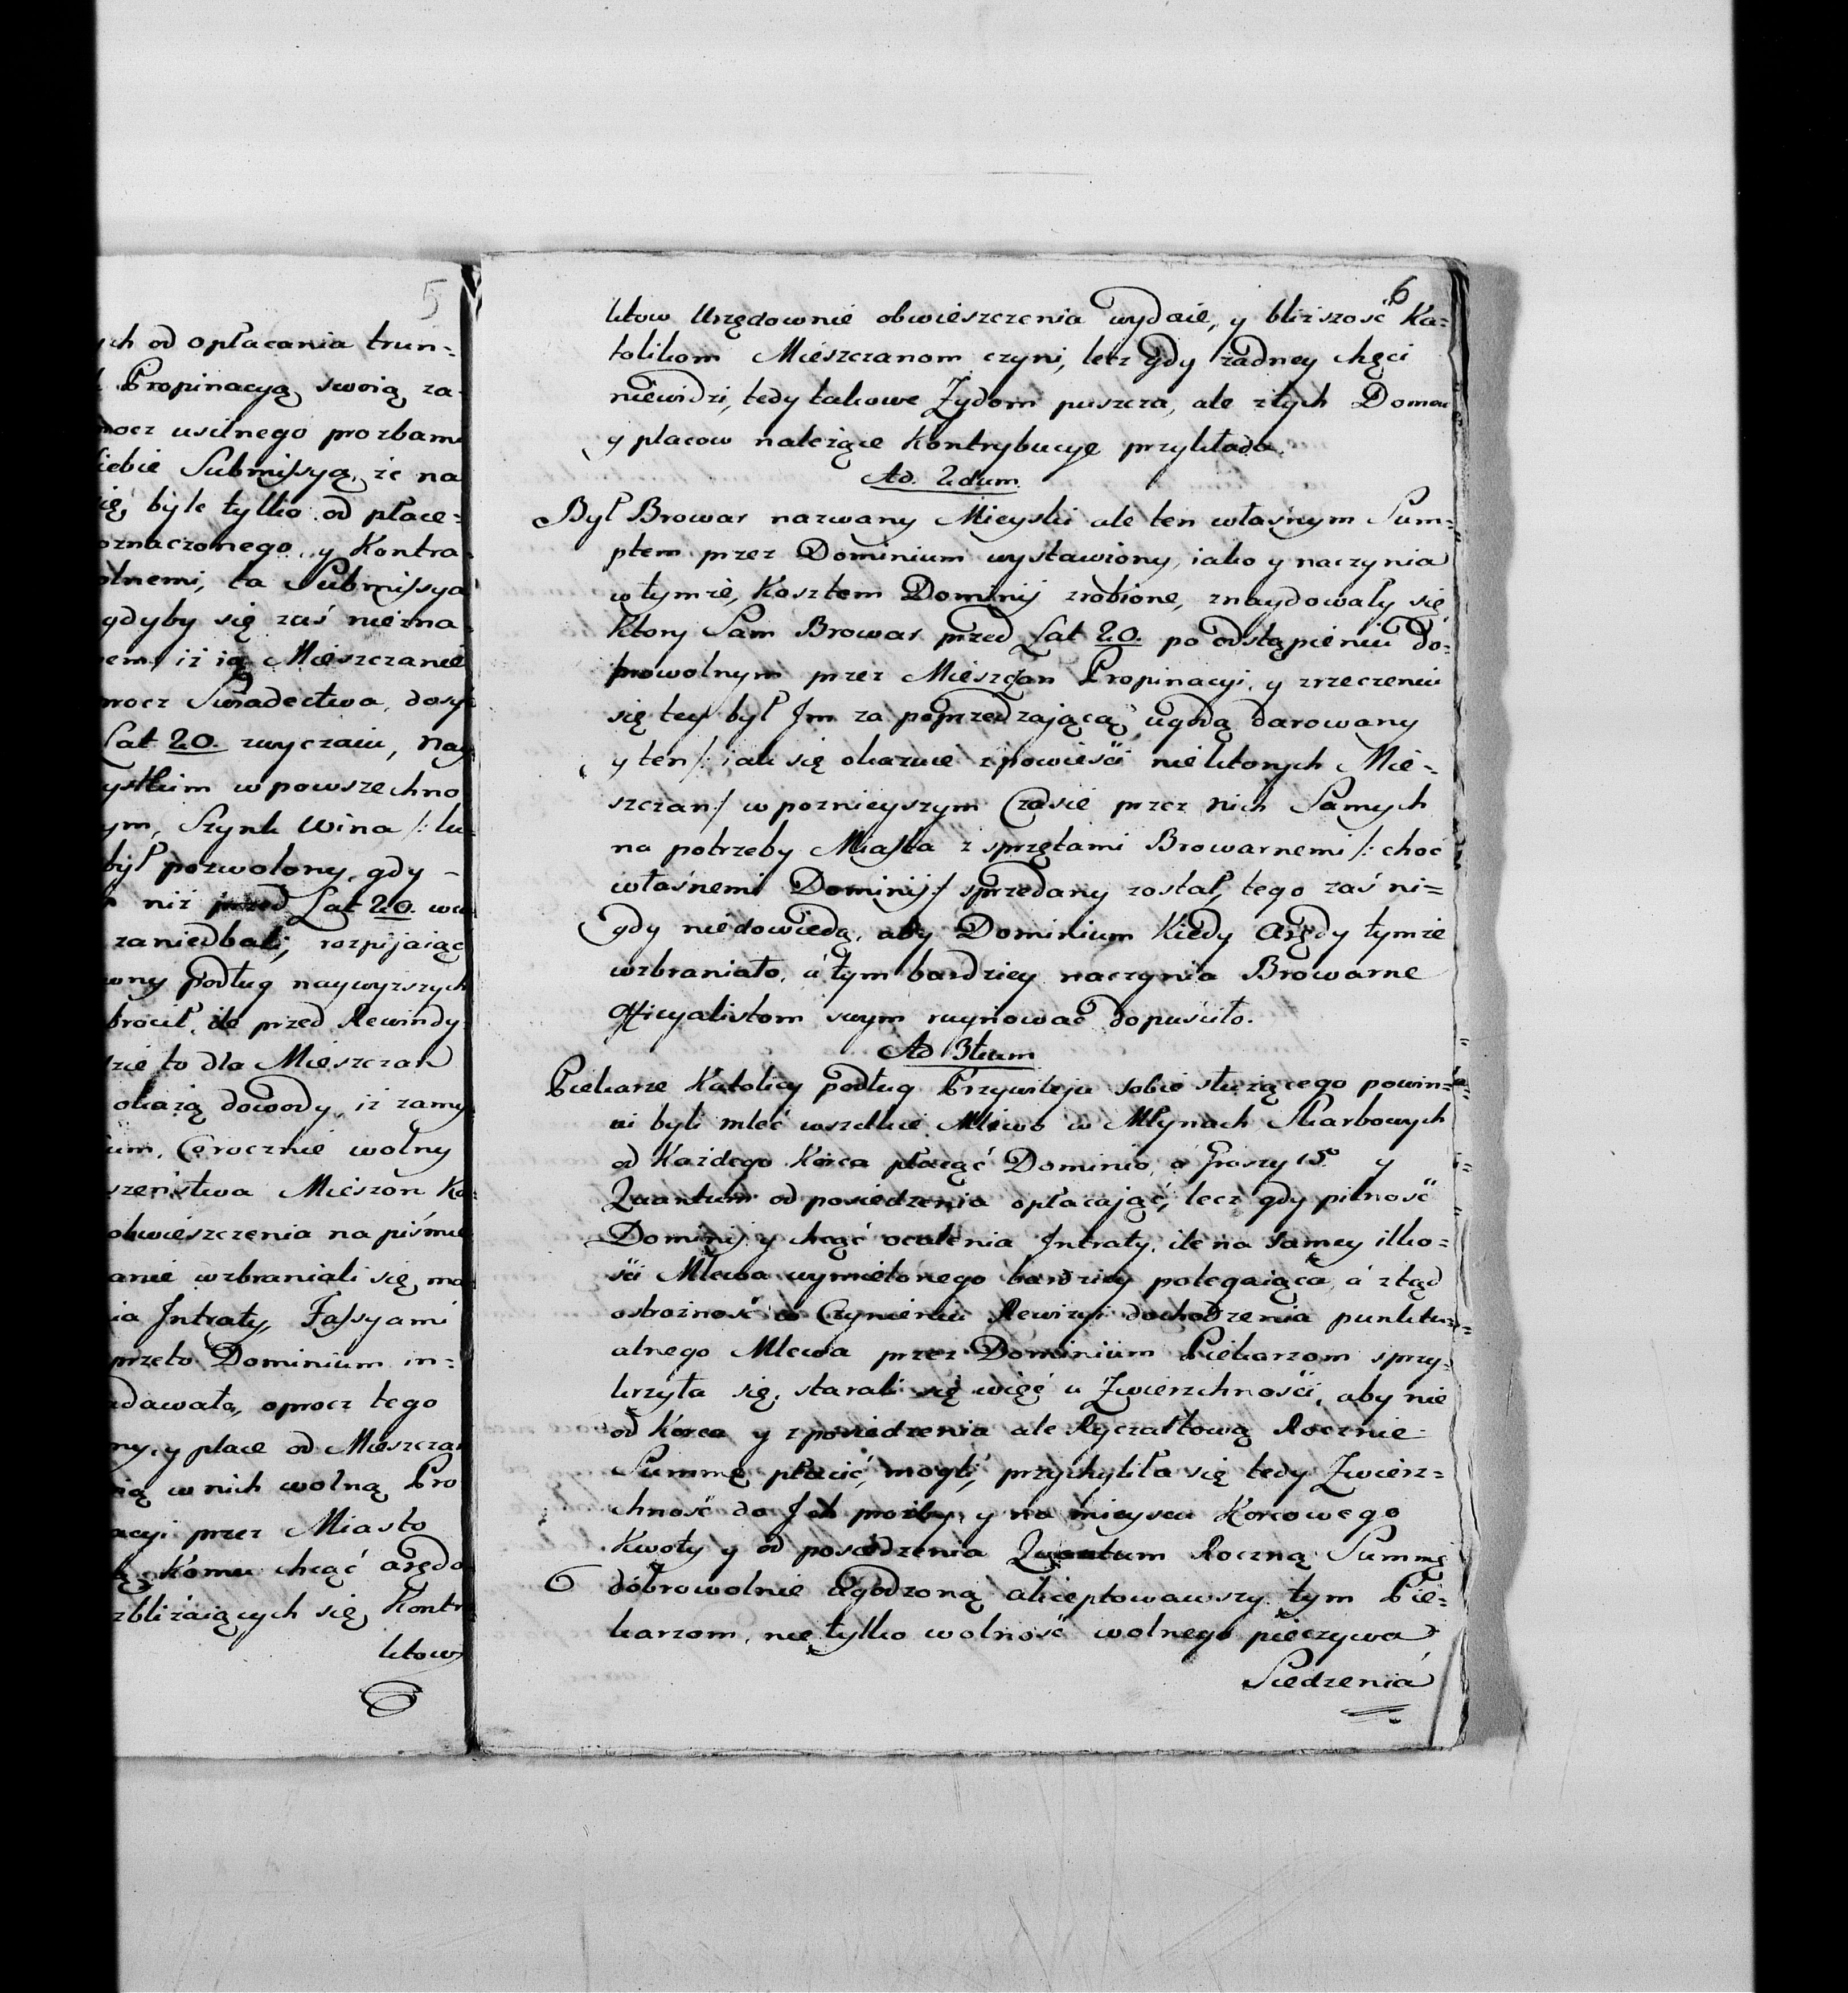 5
ych od opłacania trun-
Propinacyą swoią za-
mocz usilnego prozbami
siebie Submissyą, że na
się, byle tylko od płace-
oznaczonego, y Kontra-
olnemi, ta Submissya
gdyby się zaś niezna-
iż ią Mieszczanie
procz Swiadectwa, dosyć
Lat 20. zwyczaiu, nay
ystkim w powszechno
ym, Szynk Wina /: lu-
był pozwolony, gdy -
niż przed Lat 20.
zaniedbali, rozpijaiąc
wny podług naywyzszych
brocił, ile przed Rewindy-
zie to dla Mieszczan
okażą dowody, iż zamy
um, Corocznie wolny
szeństwa Mieszcan Ka-
obwieszczenia na piśmie
anie wzbraniali się, ma
ia Intraty, Fassyami
przeto Dominium in-
adawała, oprocz tego
ny, y place od Mieszczan
ią w nich wolną Pro
acyi przez Miasto
Komu chcąć arędo
zbliżaiących się, Kontra
ktow
6
ktow Urzędownie obwieszczenia wydaie, y bliższość Ka-
tolikom Mieszczanom czyni, lecz gdy żadney chęci
niewidzi, tedy takowe Żydom puszcza, ale z tych Domow
y placow należące Kontrybucye przykłada.
Ad 2dum
Był Browar nazwany Mieyski ale ten własnym Sum-
ptem przez Dominium wystawiony, iako y naczynia
w tymże, Kosztem Dominij zrobione, znaydowały się
Ktory Sam Browar przed Lat 20. po odstąpieniu do-
browolnym przez Mieszczan Propinacyi, y zrzeczeniu
się tey był Im za poprzedzającą ugodą darowany
y ten /: iak się okazuie z powieści niektorych Mie-
szczan :/ w poznieyszym Czasie przez nich Samych
na potrzeby Miasta z sprzętami Browarnemi /: choć
własnemi Dominij :/ sprzedany został, tego zaś ni-
gdy niedowiedą, aby Dominium Kiedy Arędy tymże
wzbraniało, a tym bardziey naczynia Browarne
Officyalistom swym ruynować dopusciło.
Ad 3tium
Piekarze Katolicy podług Przywileju sobie służącego powin-
ni byli mleć wszelkie Mlewo w Młynach Skarbowych
od Każdego Korca płacąć Dominio, a Groszy 15. y
Quantum od posiedzenia opłacając, lecz gdy pilność
Dominij y chęć ocalenia Intraty, ile na samey ilko-
ści Mlewa wymielonego bardziey polegaiąca, a ztąd
ostrożność w Czynieniu Rewizyi dochodzenia punktu-
alnego Mlewa przez Dominium Piekarzom sprzy-
krzyła się, starali się więć u Zwierzchności, aby nie
od Korca y z posiedzenia ale Ryczałtową Rocznie
Summę płacić, mogli, przychyliła się tedy Zwierz-
chność do Ich prozby, y na mieyscu Korcowego
Kwoty y od posiedzenia Quantum Roczną Summę
dobrowolnie Ugodzoną akceptowawszy, tym Pie-
karzom, nie tylko wolność wolnego pieczywa
Siedzenia